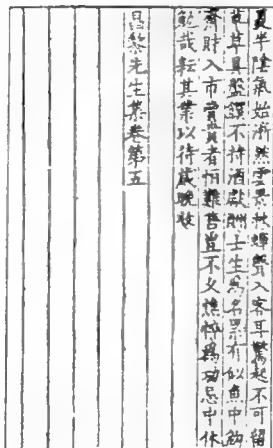 夏半陰氣始淅然雲景秋蟬聲入客耳驚起不可留
草草具盤饌不待酒獻酬士生為名累有似魚中鈎
齎財入市賣貴者恒難售豈不畏憔悴為功忌中休
勉哉耘其業以待歲晚收
昌黎先生集卷第五